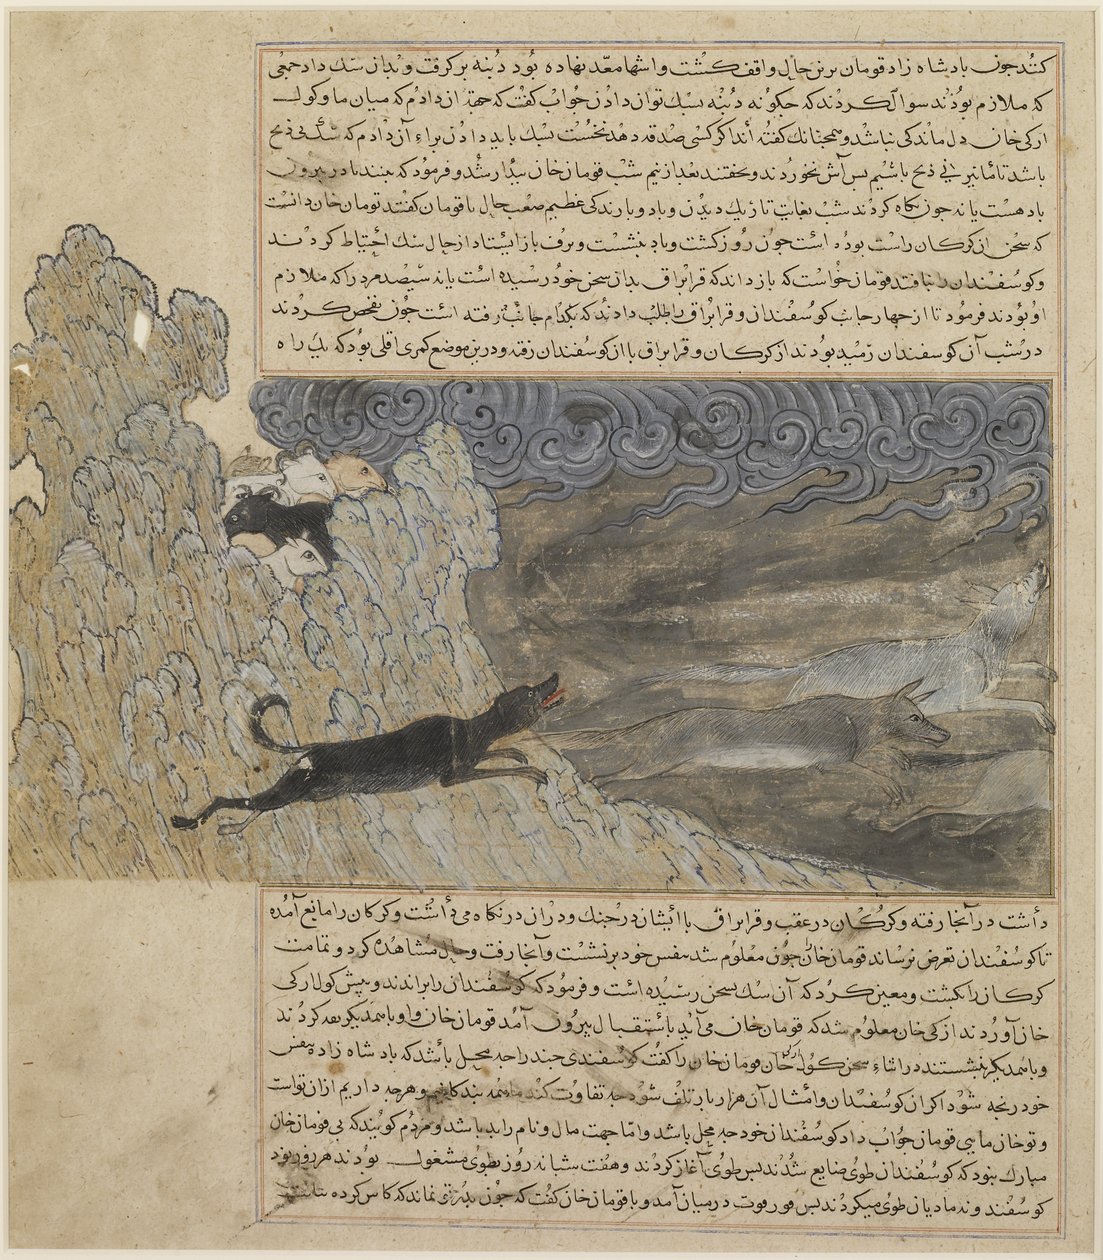 کنند جون بادشاه زاد قومان برین حال واقف کشت واشها معدّ نهاده بود دنبه برکرفت وبذان سک داد جمعی
که ملازم بوذند سوال کردند که جکونه دنبه بسک توان داذن جواب کفت که جهة آن داذم که میان ما وکول
ارکی خان دل ماندکی نباشد وهمجنانک کفته اند اکر کسی صدقه دهد نخست بسک باید داذن براء آن داذم که
باشد تا مانیز فی ذبح باشیم بس آش بخوردند وبخفتند بعد از نیم شب قومان خان بیدار شد وفرمود که ببینند تا در بیرون
باد هست یا نه جون نکاه کردند شب بغایت تاریک دیدن وباد وبارندکی عظیم صعب حال با قومان کفتند قومان خان دانست
که سخن از کرکان راست بوده است جون روز کشت وباد بنشست وبرف باز ایستاد از حال سک احتیاط کردند
وکوسفندان را نیافتند قومان خواست که باز داند که قرابراق بداز سخن خود رسیده است یا نه سیصد مرد را که ملازم
او بوذند فرمود تا از جهار جانب کوسفندان وقرابراق را طلب دادند که بکدام جانب رفته است جون تفحص کردند
در شب آن کوسفندان رمیده بودند از کرکان وقرابراق با آن کوسفندان رفته ودرین موضع کمری اقلی بود که یک راه
داشت در آنجا رفته وکرکان در عقب وقرابراق با ایشان در جنک ودران در نکاه می داشت وکرکان را مانع آمده
تا کوسفندان تعرض نرساند قومان خان جون معلوم شد بنفس خود برنشست وآنجا رفت وحال مشاهده کرد وتمامت
کرکان را بکشت ومعین کرد که آن سک بسخن رسیده است وفرمود که کوسفندان را براندند وبیش کول ارکی
خان آوردند ارکی خان معلوم شد که قومان خان می آید باستقبال بیرون آمد قومان خان واو باهمدیکر بغه کردند
وباهمدیکر بنشستند در اثناء سخن کول ارکی خان قومان خان را کفت کوسفندی جند را جه محل باشد که بادشاه زاده بنفس
خود رنجه شود اکر ان کوسفندان وامثال آن هزار بار تلف شود جه تفاوت کند ما همه بنده کانیم وهرجه داریم ازان تواست
وتو خان مایی قومان جواب داد کوسفندان را خود جه محل باشد واما جهت مال ونام را بد باشد ومردم کویند که بی قومان خان
مبارک نبود که کوسفندان طوی ضایع شدند بس طوی آغاز کردند وهفت شبانه روز بطوی مشغول بودند هر روز نود
کوسفند ونه مادیان طوی میکردند بس قور قوت در میان آمد وبا قومان خان کفت که جون بدرت نماند که کاس کرده